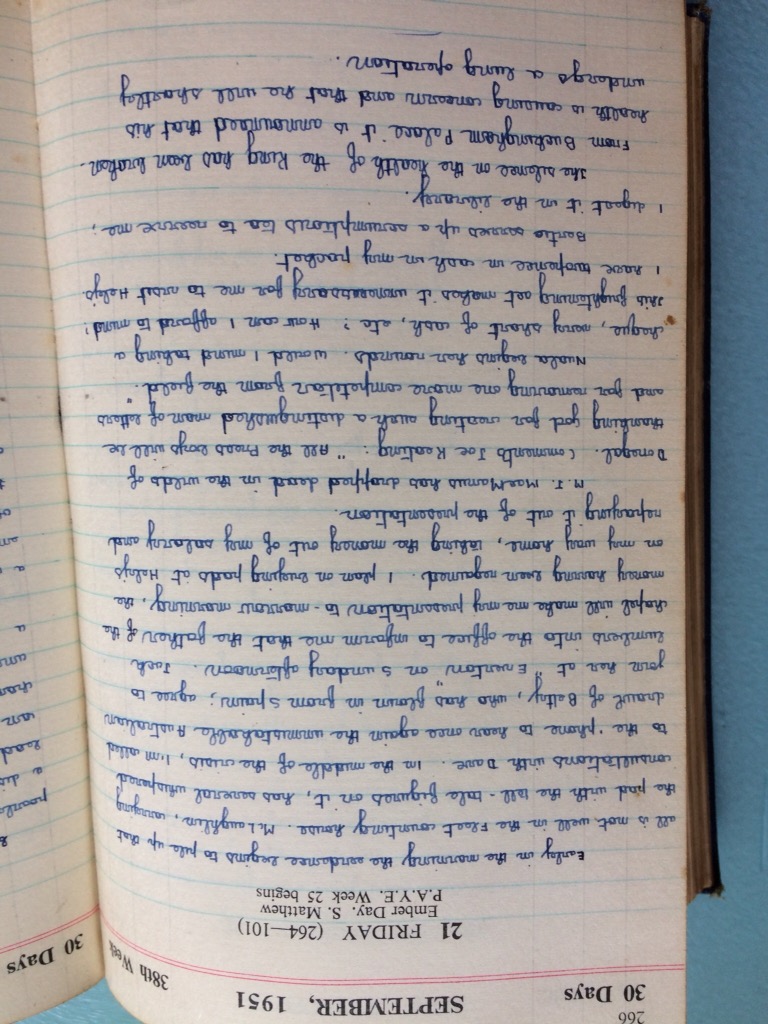 266
30 Days SEPTEMBER, 1951 38th Week
21 FRIDAY (264—101)
Ember Day. S. Matthew
P.A.Y.E. Week 25 begins
Early in the morning the evidence begins to pile up that
all is not well in the Fleet counting house. McLaughlin, carrying
the pad with the tell-tale figures on it, has several whispered
consultations with Dave. In the middle of the crisis, I'm called
to the 'phone to hear once again the unmistakable Australian
drawl of Betty, who has flown in from Spain; agree to
join her at "Everton" on Sunday afternoon. Jack
lumbers into the office to inform me that the father of the
chapel will make me my presentation to-morrow morning, the
money having been regained. I plan on buying pads at Hely's
on my way home, taking the money out of my salary and
repaying it out of the presentation.
M.J. MacManus has dropped dead in the wilds of
Donegal. Comments Joe Keating: "All the Press boys will be
thanking god for creating such a distinguished man of letters
and for removing one more competitor from the field."
Nuala begins her rounds. Would I mind taking a
cheque, very short of cash, etc? How can I afford to mind?
This frightening act makes it unnecessary for me to visit Hely's
I have twopence in cash in my pocket.
Bertie serves up a scrumptious tea to revive me;
I digest it in the library.
The silence on the health of the King has been broken.
From Buckingham Palace it is announced that his
health is causing concern and that he will shortly
undergo a lung operation.
30 Days